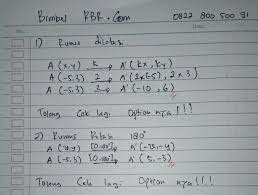 Bimbel RBR . Com 0822 800 500 81
1) Rumus dilatasi
A (x,y) k→ A' (kx, ky)
A (-5,3) 2→ A' (2x(-5), 2 x 3)
A (-5,3) 2→ A' (-10, 6)
Tolong Cek lagi Option nya !!!
2) Rumus Rotasi 180°
A (x,y) [0,180°]→ A' (-x, -y)
A (-5,3) [0,180°]→ A' (5, -3)
Tolong Cek lagi Option nya !!!